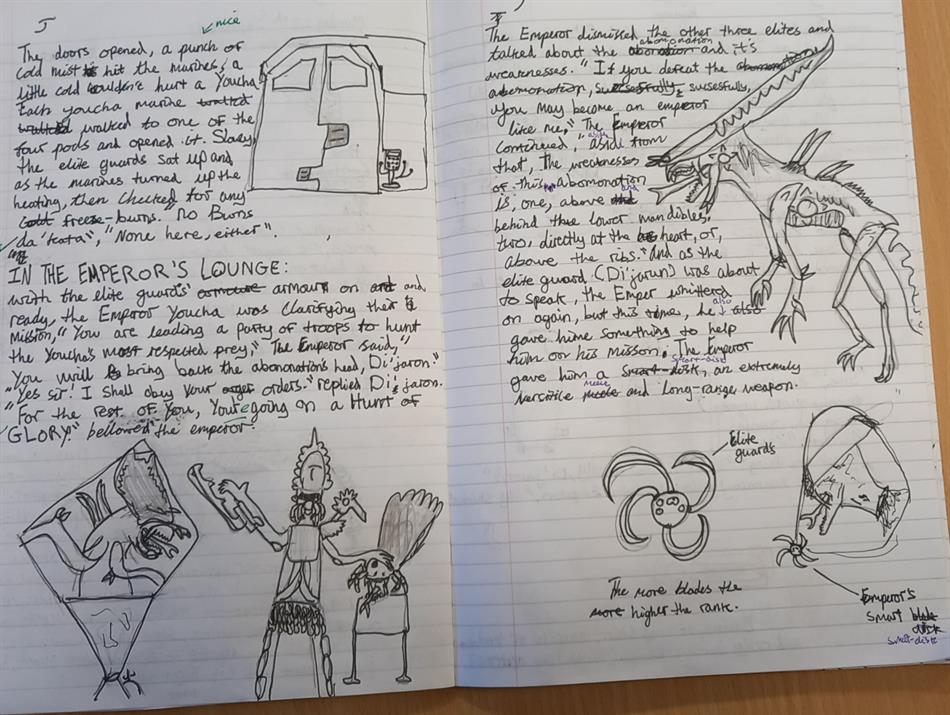 nice
The doors opened, a punch of
cold mist hit the marines, a
little cold couldn't hurt a Youcha.
Each youcha marine
walked to one of the
four pods and opened it. Slowly,
the elite guards sat up and
as the marines turned up the
heating, then checked for any
freeze-burns. No Burns
da 'kata", "None here, either".
IN THE EMPEROR'S LOUNGE:
with the elite guards' armour on and
ready, the Emperor Youcha was clarifying their
Mission, "You are leading a party of troops to hunt
the Youcha's most respected prey," The Emperor said, "
You will bring back the abonoration's head, Di'jaron."
"Yes sir! I shall obay your orders." replied Di'jaron.
"For the rest of You, You're going on a Hunt of
GLORY." bellowed the emperor.
The Emperor dismissed the other three elites and
talked about the abomonation and it's
weaknesses. "If you defeat the
abomonation, sucsesfully,
you may become an emperor
like me," The Emperor
continued, "aside from
that, The weaknesses
of this abomonation
is, one, above and
behind the lower mandibles,
two, directly at the heart, or,
above the ribs." And as the
elite guard (Di'jarun) was about
to speak, the Emper whittered
on again, but this time, he also
gave hime something to help
him on his misson. The Emperor
gave him a Smart-disk, an extremely
versitile melee and Long-range weapon.
Elite
guards
The more blades the
higher the rank.
Emperor's
Smart
disk
smart-disk